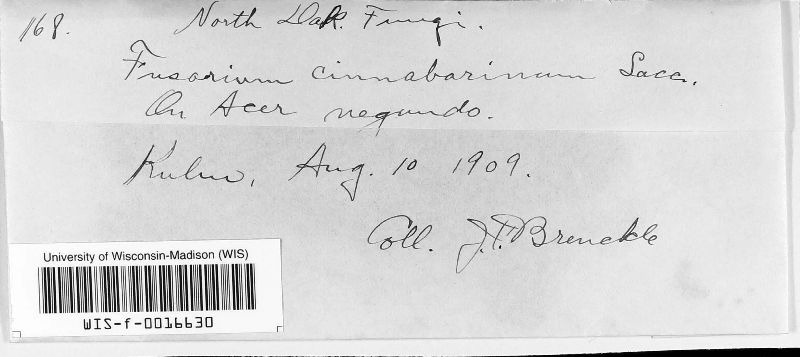 168.
North Dak. Fungi.
Fusarium cinnabarinum Sacc.
On Acer negundo.
Kulm, Aug. 10 1909.
Coll. J.F. Brenckle
University of Wisconsin-Madison (WIS)
WIS-f-0016630